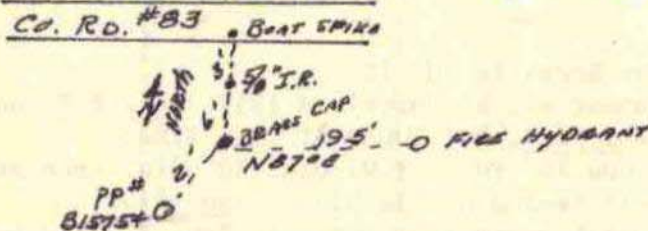 CO. RD. #83
BOAT SPIKE
5/8" I.R.
NORTH
BRASS CAP
195'
FIRE HYDRANT
N87°E
PP#
81575